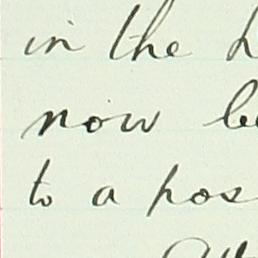 in the
now
to a pos